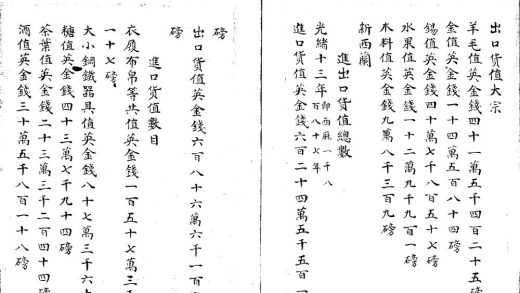 出口貨值大宗
羊毛值英金錢四十一萬五千四百二十五磅
金值英金錢一十四萬五百八十四磅
錫值英金錢四萬七千八百五十七磅
水果值英金錢一十二萬九千九百一磅
木料值英金錢九萬八千三百九磅
新西蘭
進出口貨值總數
光緒十三年即西厤一千八百八十七年
進口貨值英金錢六百二十四萬五千五百一
磅
出口貨值英金錢六百八十六萬六千一百
磅
進口貨值數目
衣履布帛等共值英金錢一百五十七萬三
一十七磅
大小鋼鐵器具值英金錢八十七萬三千六
糖值英金錢四十三萬七千九十四磅
茶葉值英金錢二十三萬三千二百四十四磅
酒值英金錢三十萬五千八百一十八磅